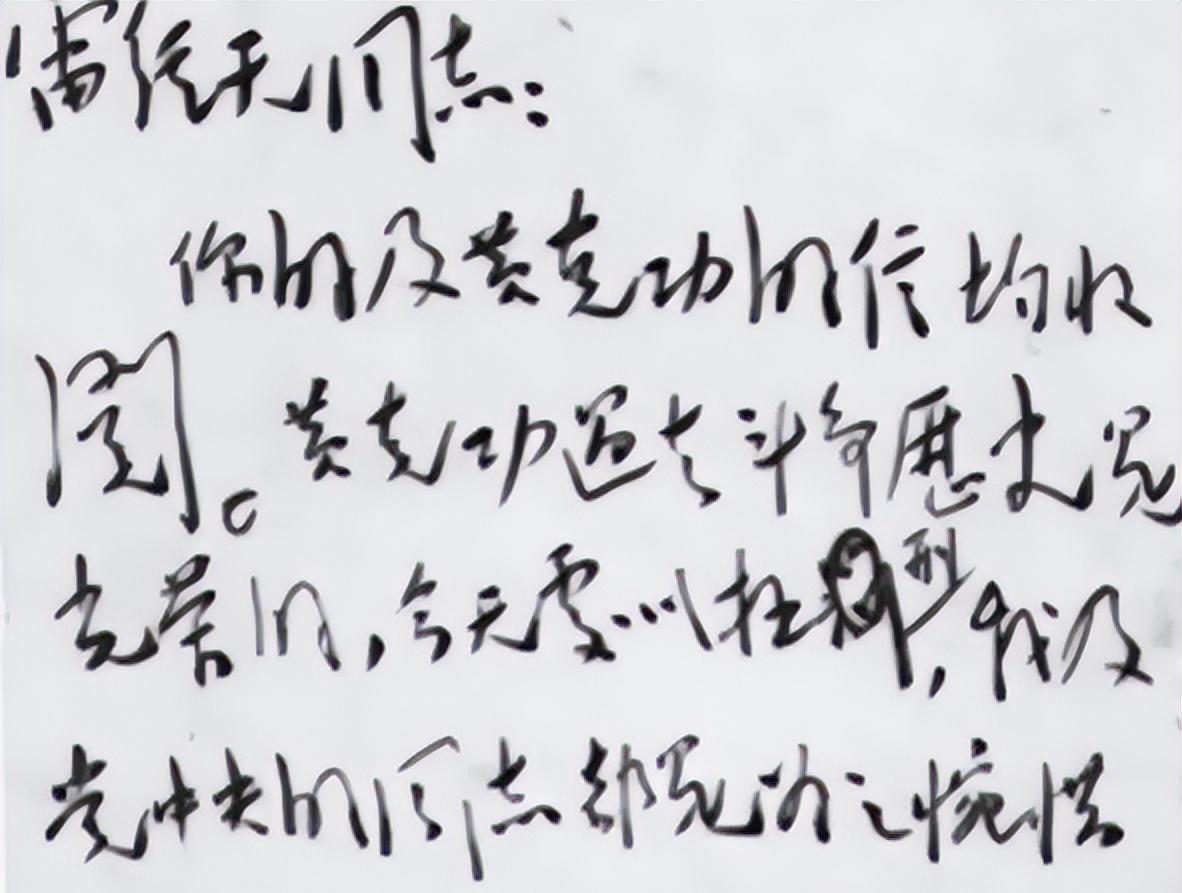 雷经天同志：
你的及黄克功的信均收
阅。黄克功過去斗争歷史是
光荣的，今天處以极刑，我及
党中央的同志都是为之惋惜